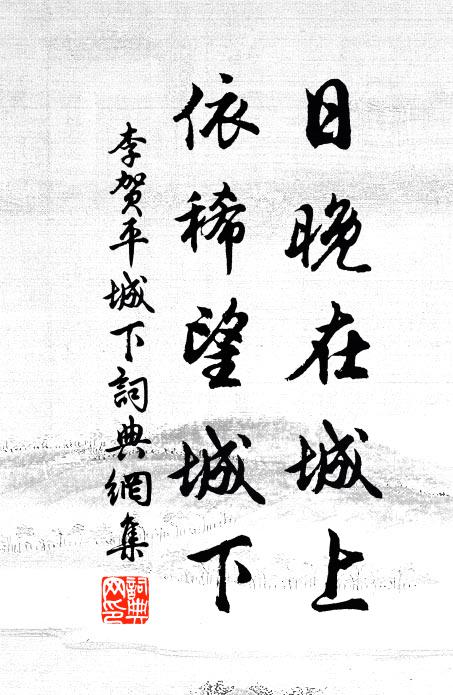 日晚在城上
依稀望城下
李贺平城下詞典網集
詞典
网印